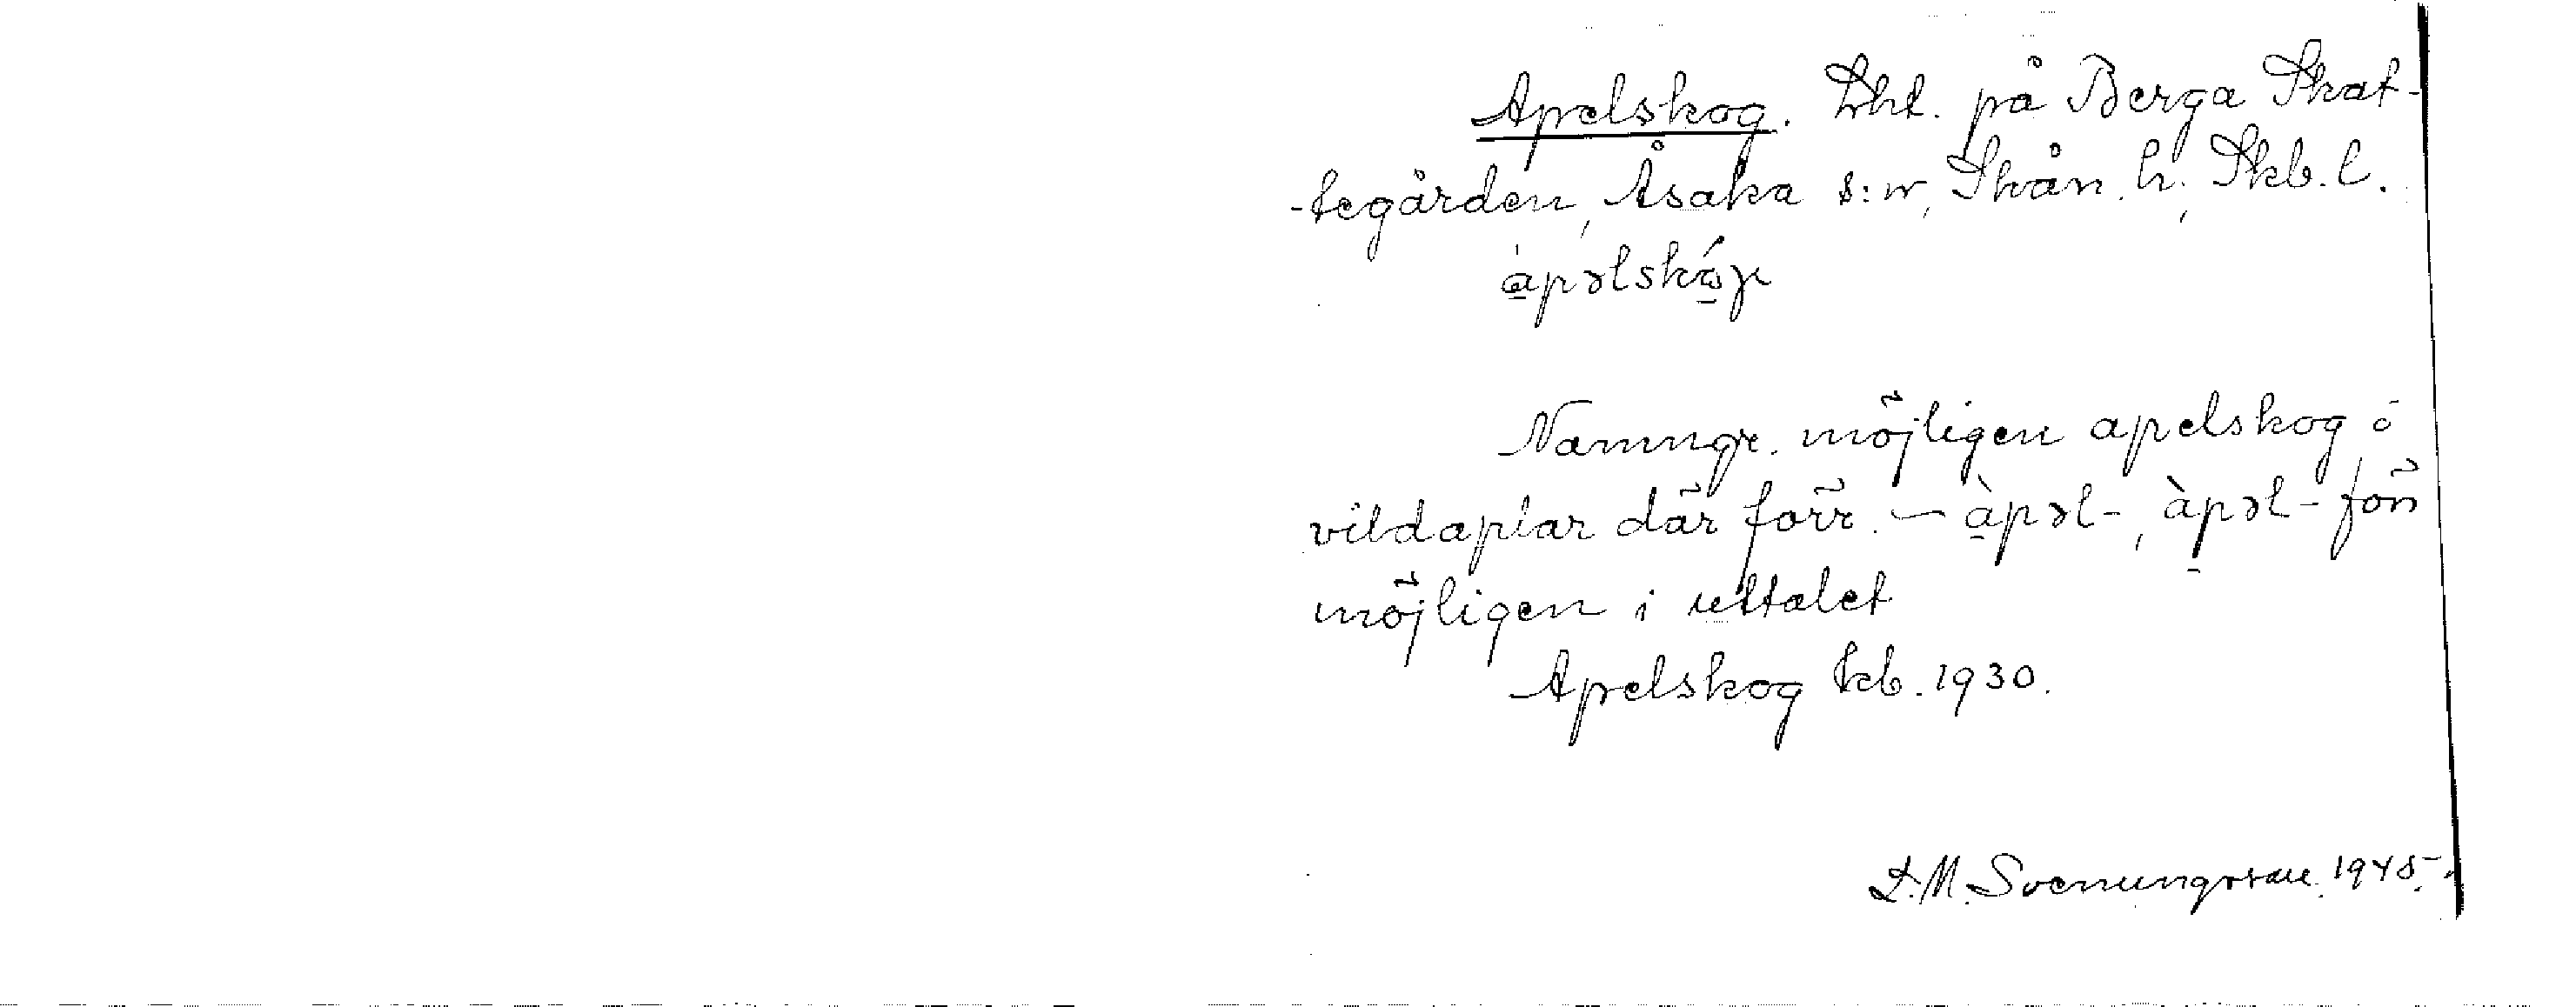 Apelskog. Lht. på Berga Skat-
-tegården, Åsaka s:n, Skån. h., Skb. l.
àpəlskóγ
Namngr. möjligen apelskog o
vildaplar där förr. – àpəl-, àpəl- fön
möjligen i uttalet
Apelskog kb. 1930.
L.M. Svenungsson 1945.